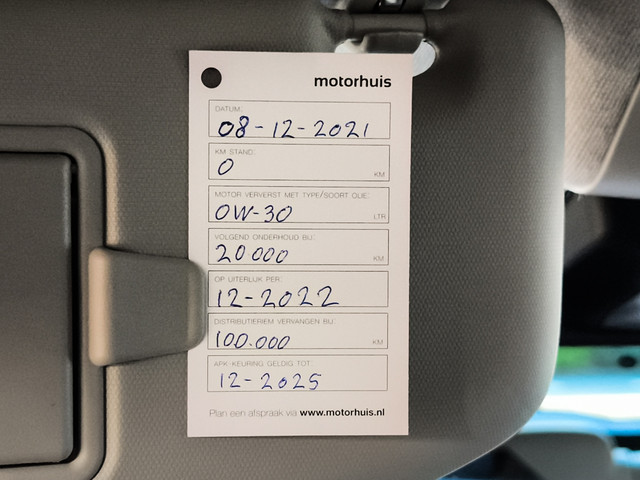 motorhuis
DATUM:
08-12-2021
KM STAND:
0 KM
MOTOR VERVERST MET TYPE/SOORT OLIE:
0W-30 LTR
VOLGEND ONDERHOUD BIJ:
20 000 KM
OP UITERLIJK PER:
12-2022
DISTRIBUTIERIEM VERVANGEN BIJ:
100.000 KM
APK-KEURING GELDIG TOT:
12-2025
Plan een afspraak via www.motorhuis.nl